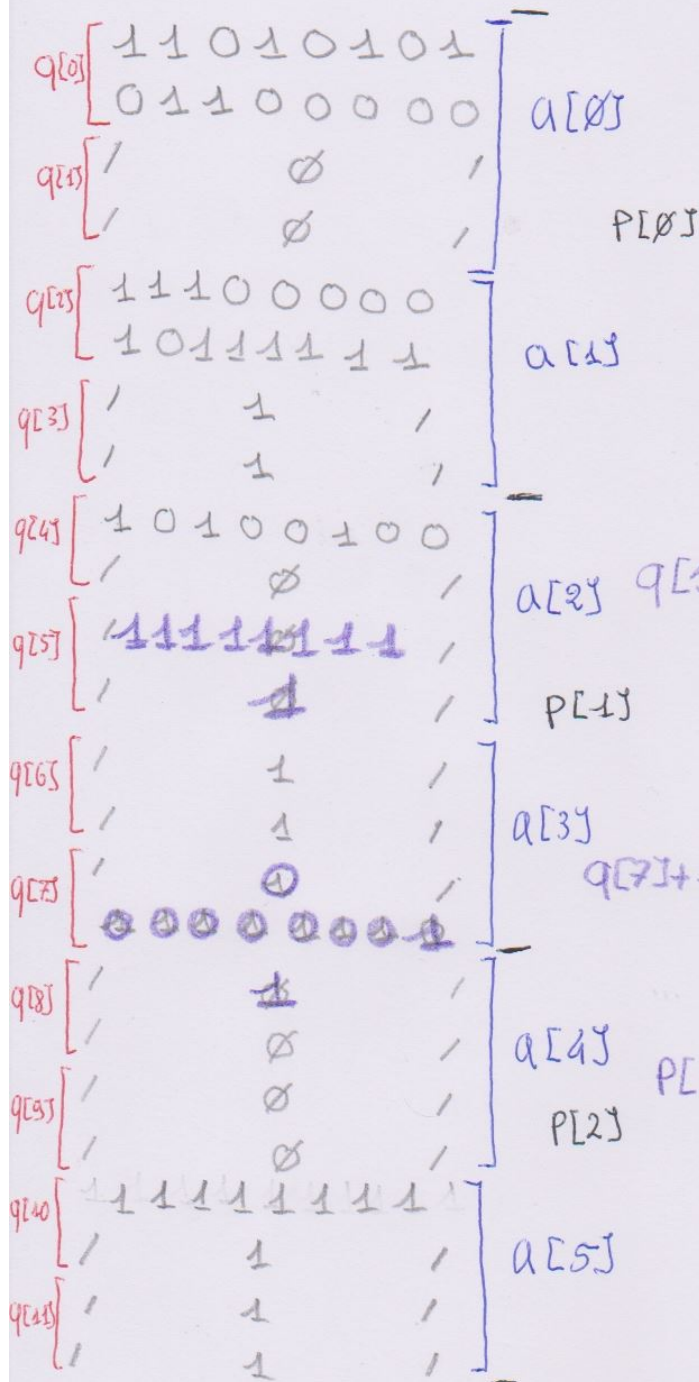 q[0] 1 1 0 1 0 1 0 1
0 1 1 0 0 0 0 0 a[Ø]
q[1] / Ø /
/ Ø / P[Ø]
q[2] 1 1 1 0 0 0 0 0
1 0 1 1 1 1 1 1 a[1]
q[3] / 1 /
/ 1 /
q[4] 1 0 1 0 0 1 0 0
/ Ø / a[2]
q[5] / 1 1 1 1 1 1 1 1 /
/ 1 / P[1]
q[6] / 1 /
/ 1 / a[3]
q[7] / 0 /
0 0 0 0 0 0 0 1
q[8] / 1 /
/ Ø / a[4]
q[9] / Ø /
/ Ø / P[2]
q[10 1 1 1 1 1 1 1 1
/ 1 / a[5]
q[11] / 1 /
/ 1 /